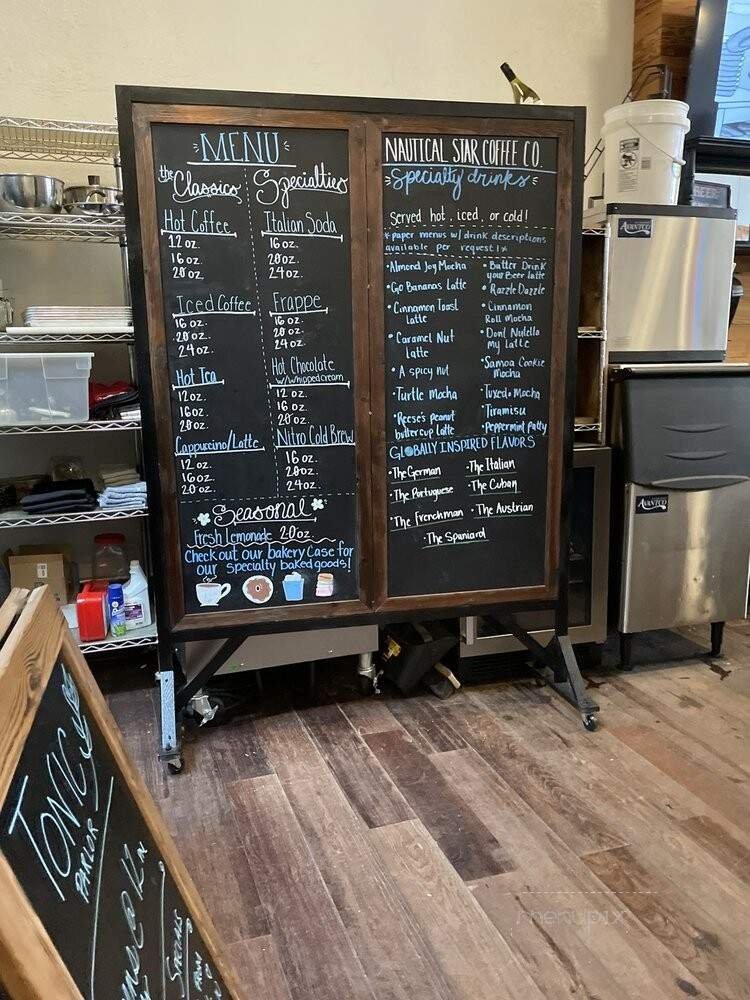 MENU
the Classics
Hot Coffee
12 oz.
16 oz.
20 oz.
Iced Coffee
16 oz.
20 oz.
24 oz.
Hot Tea
12 oz.
16 oz.
20 oz.
Cappuccino/Latte
12 oz.
16 oz.
20 oz.
Specialties
Italian Soda
16 oz.
20 oz.
24 oz.
Frappe
16 oz.
20 oz.
24 oz.
Hot Chocolate
w/whipped cream
12 oz.
16 oz.
20 oz.
Nitro Cold Brew
16 oz.
20 oz.
24 oz.
Seasonal
Fresh Lemonade 20 oz
Check out our bakery case for
our specialty baked goods!
NAUTICAL STAR COFFEE CO.
Specialty drinks
Served hot, iced, or cold!
*paper menus w/ drink descriptions
available per request!*
• Almond Joy Mocha
• Go Bananas Latte
• Cinnamon Toast
Latte
• Caramel Nut
Latte
• A spicy nut
• Turtle Mocha
• Reese's peanut
buttercup latte
• Butter Drink
your Beer latte
• Razzle Dazzle
• Cinnamon
Roll Mocha
• Dont Nutella
My latte
• Samoa Cookie
Mocha
• Tuxedo Mocha
• Tiramisu
• Peppermint patty
GLOBALLY INSPIRED FLAVORS
• The German
• The Portuguese
• The Frenchman
• The Italian
• The Cuban
• The Austrian
• The Spaniard
AVANTCO
AVANTCO
TONIC
PARLOR
SPECIALS
menupix